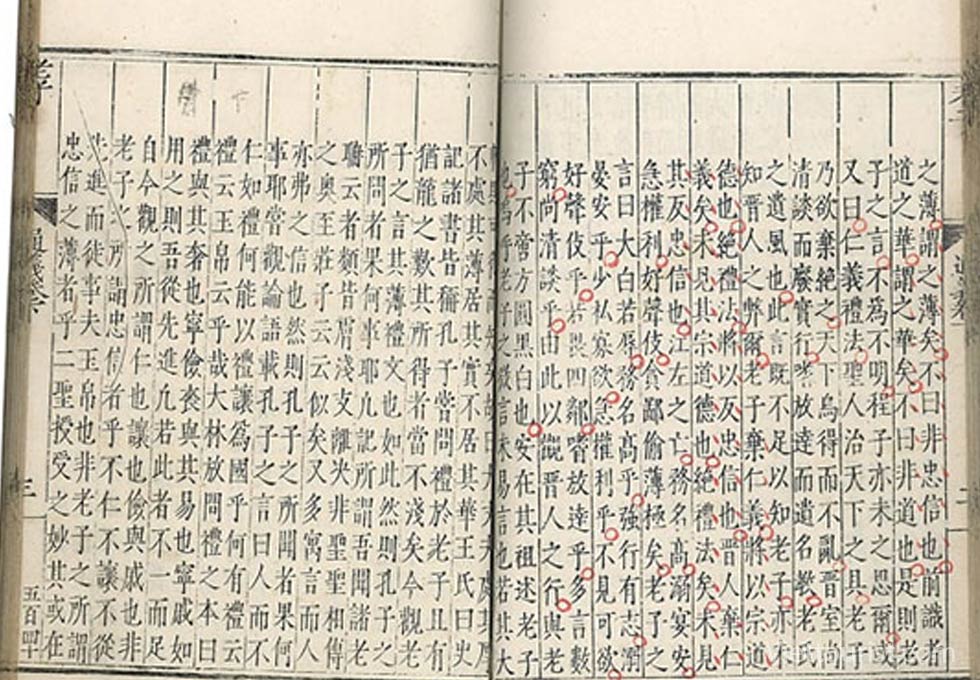 之薄謂之薄矣不曰非忠信也前識者
道之華謂之華矣不曰非道也是則老
子之言不為不明程子亦未之思爾或
又曰仁義禮法聖人治天下之具老子
乃欲棄絕之天下烏得而不亂晉室
清談而廢實行嗜放達而遺名教老氏
之道風也此言旣不足以知老子亦
知晉人之弊爾老子棄仁義將以宗道
德也絕禮法將以反忠信也晉人棄仁
義矣未見其宗道德也絕禮法矣未見
其反忠信也江左之亡務名高溺宴安
急權利好聲伎貪鄙偷薄極矣老子之
言曰大白若辱務名高乎強行有志溺
晏安乎少私寡欲急權利乎不見可欲
好聲伎乎若畏四鄰嗜放達乎多言數
窮尚清談乎由此以觀晉人之行與老
子不啻方圓黑白也安在其祖述老子
也老子之微言未易言也若其大
不處其薄居其實不居其華王氏曰史
記諸書皆稱孔子嘗問禮於老子且有
猶龍之歎其所得者當不淺矣今觀老
子之言其薄禮文也如此然則孔子
所問者果何事耶凡記所謂吾聞諸老
聃云者類皆膚淺支離決非聖聖相傳
之奧至莊子云云似矣又多寓言而人
亦弗之信也然則孔子之所聞者果何
事耶當觀論語載孔子之言曰人而不
仁如禮何能以禮讓為國乎何有禮云
禮云玉帛云乎哉大林放問禮之本曰
禮與其奢也寧儉喪與其易也寧戚如
用之則吾從先進凡若此者不一而足
自今觀之所謂仁也讓也儉與戚也非
老子之所謂忠信者乎不仁不讓不從
先進而徒事夫玉帛也非老子之所謂
忠信之薄者乎二聖授受之妙其或在
三